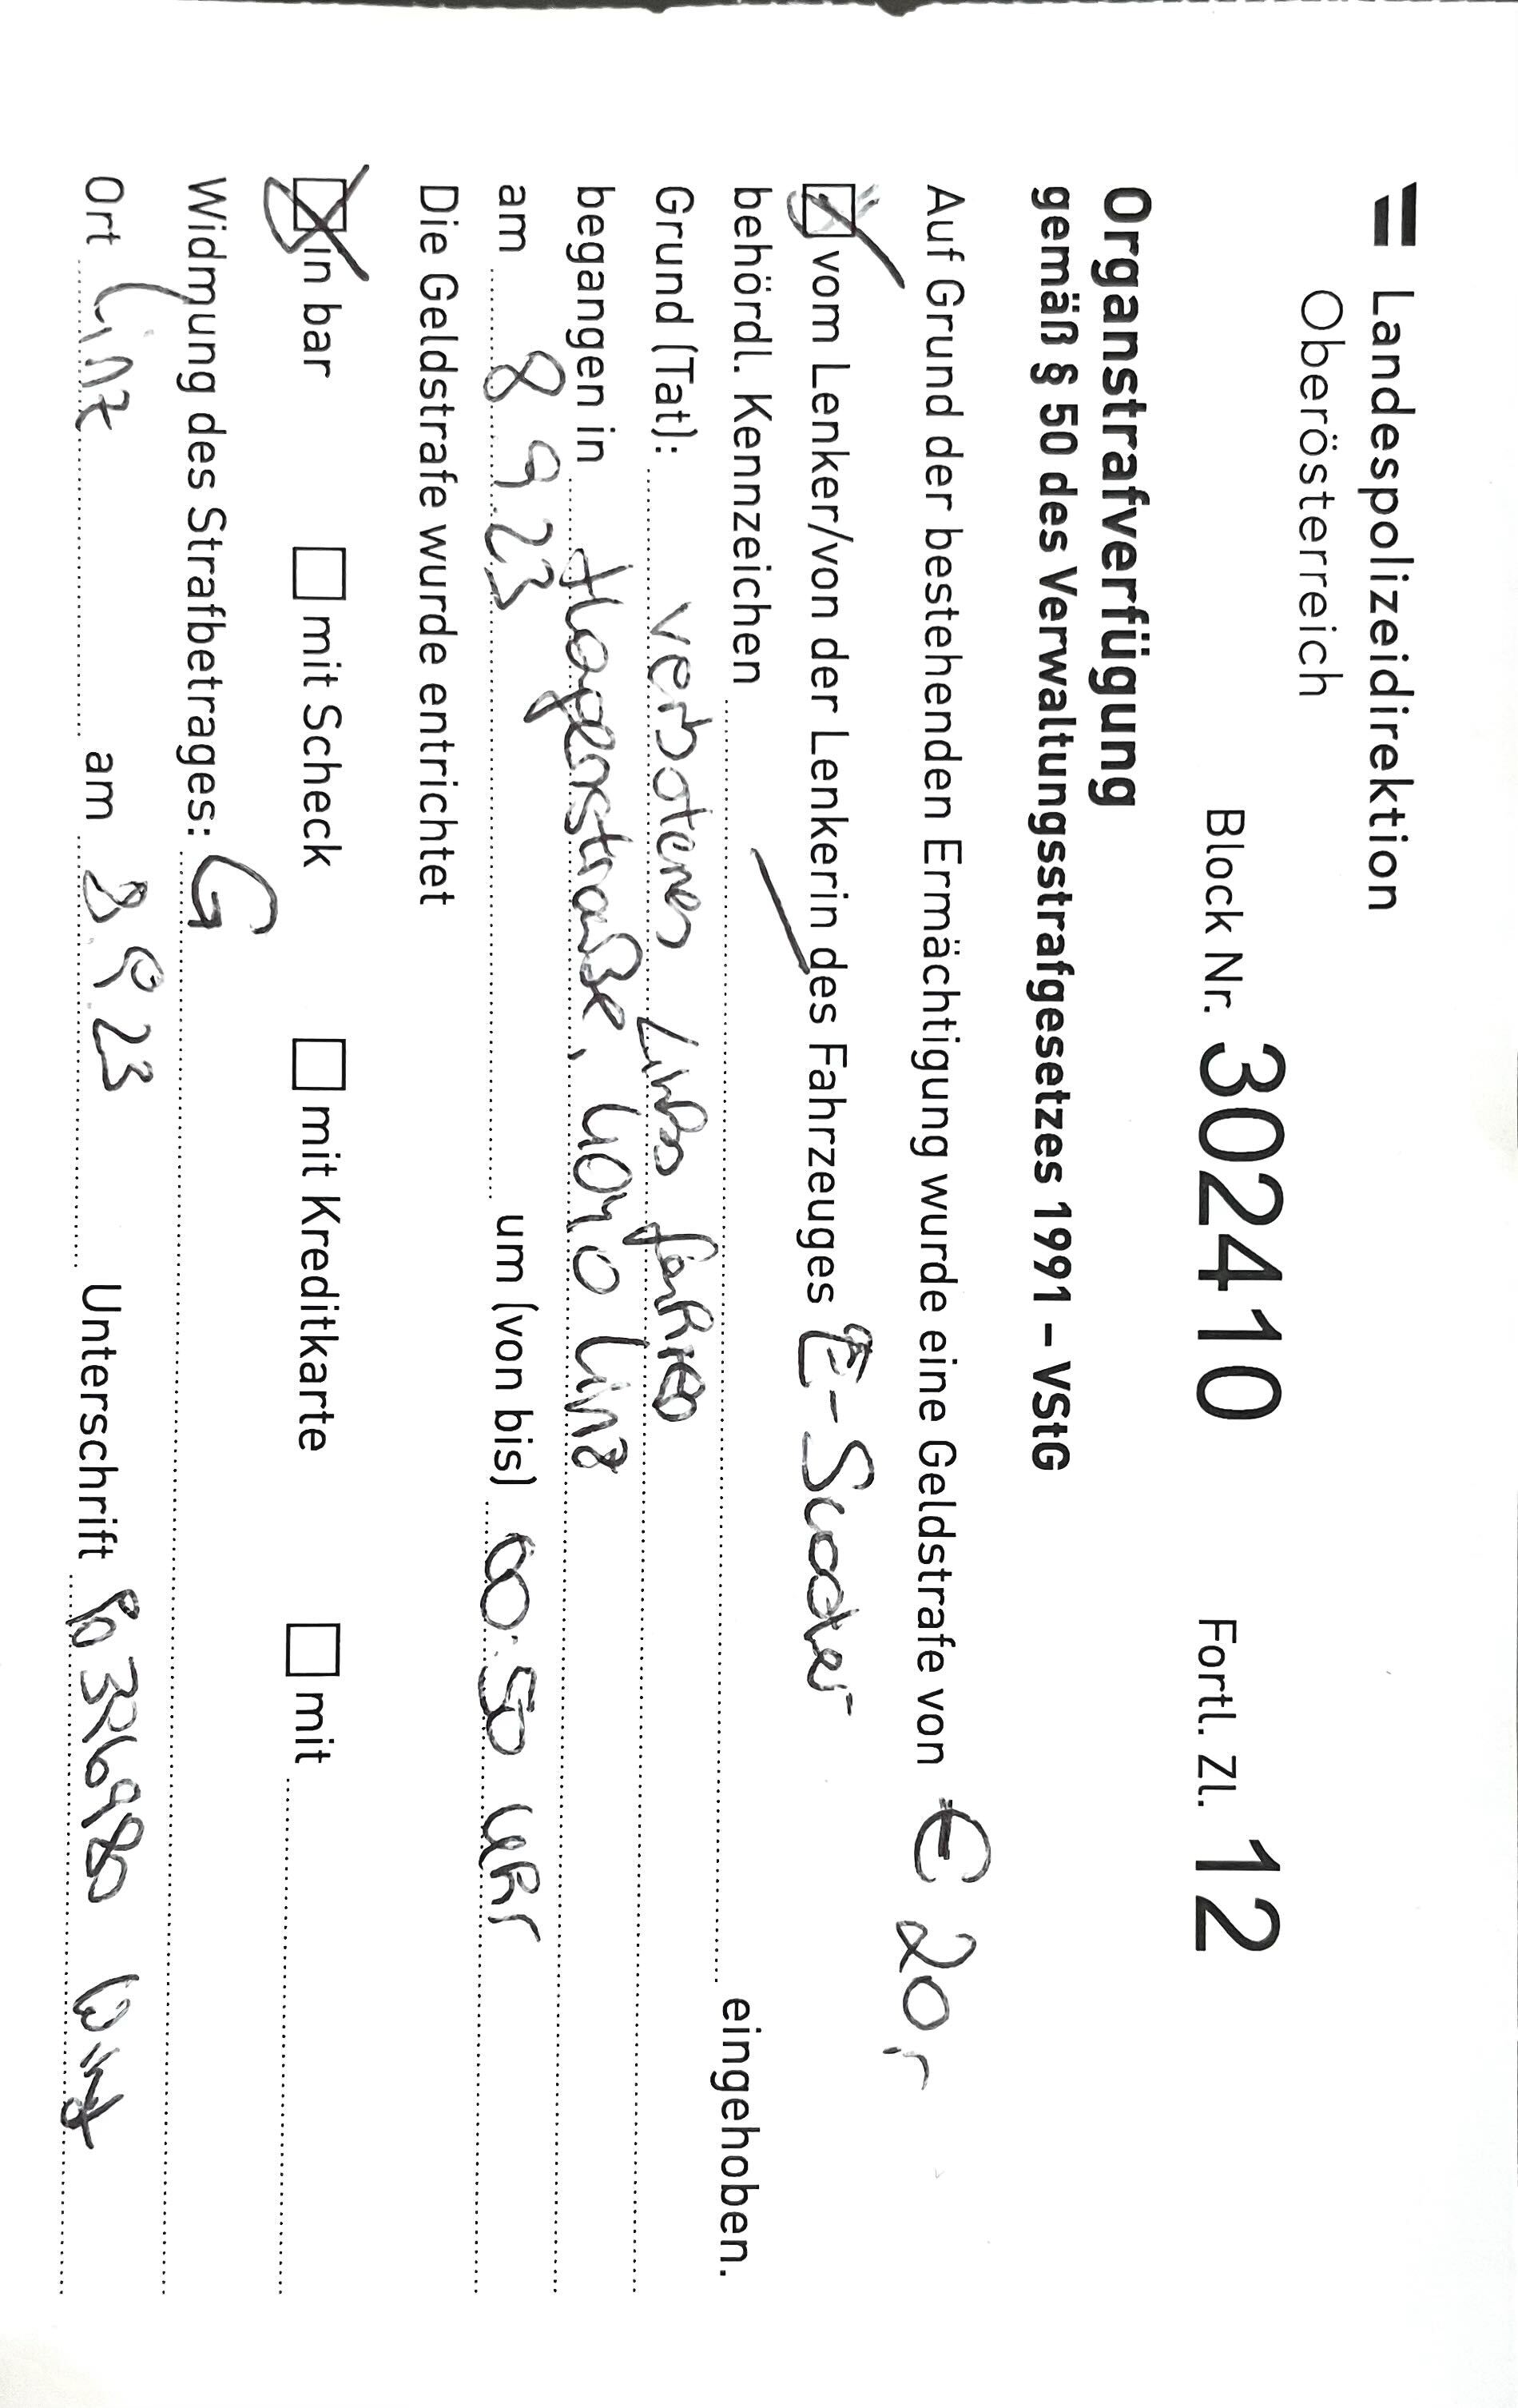 Landespolizeidirektion
Oberösterreich
Block Nr. 302410 Fortl. Zl. 12
Organstrafverfügung
gemäß § 50 des Verwaltungsstrafgesetzes 1991 – VStG
Auf Grund der bestehenden Ermächtigung wurde eine Geldstrafe von € 20,-
vom Lenker/von der Lenkerin des Fahrzeuges E-Scooter
behördl. Kennzeichen eingehoben.
Grund (Tat): verbotenes Links fahren
begangen in Hagenstraße, 4040 Linz
am 8.9.23 um (von bis) 00:50 Uhr
Die Geldstrafe wurde entrichtet
in bar mit Scheck mit Kreditkarte mit
Widmung des Strafbetrages: G
Ort Linz am 8.9.23 Unterschrift